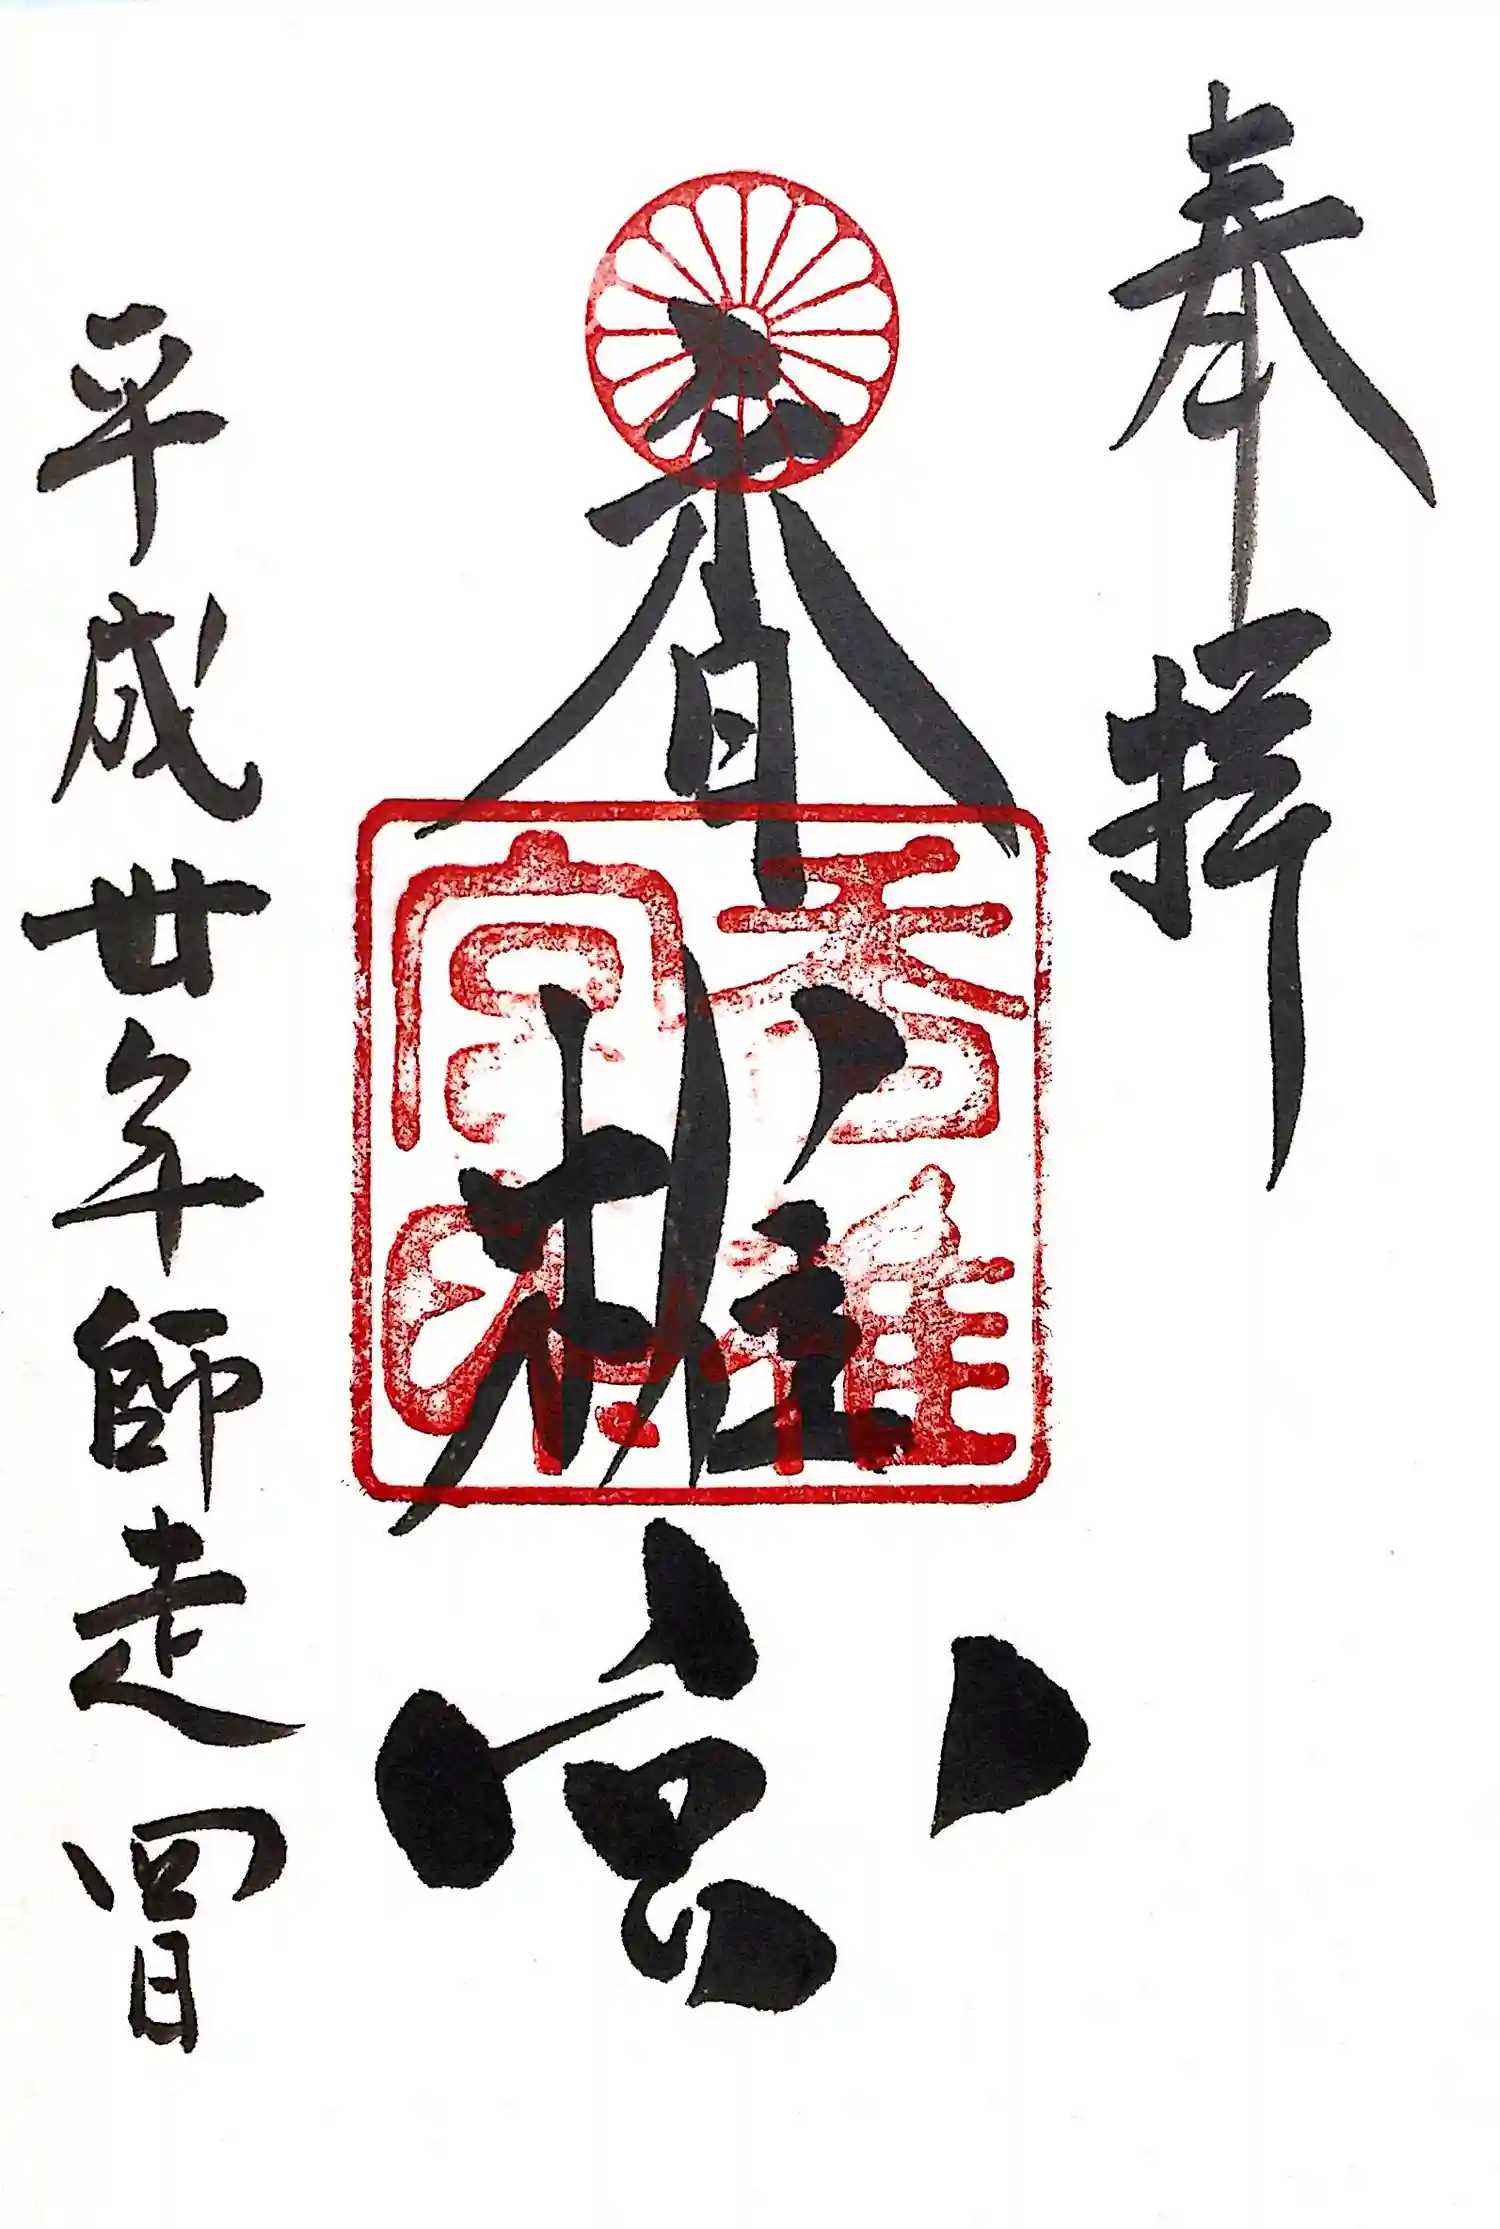 奉拝
香椎宮
香椎宮印
平成丗年師走四日